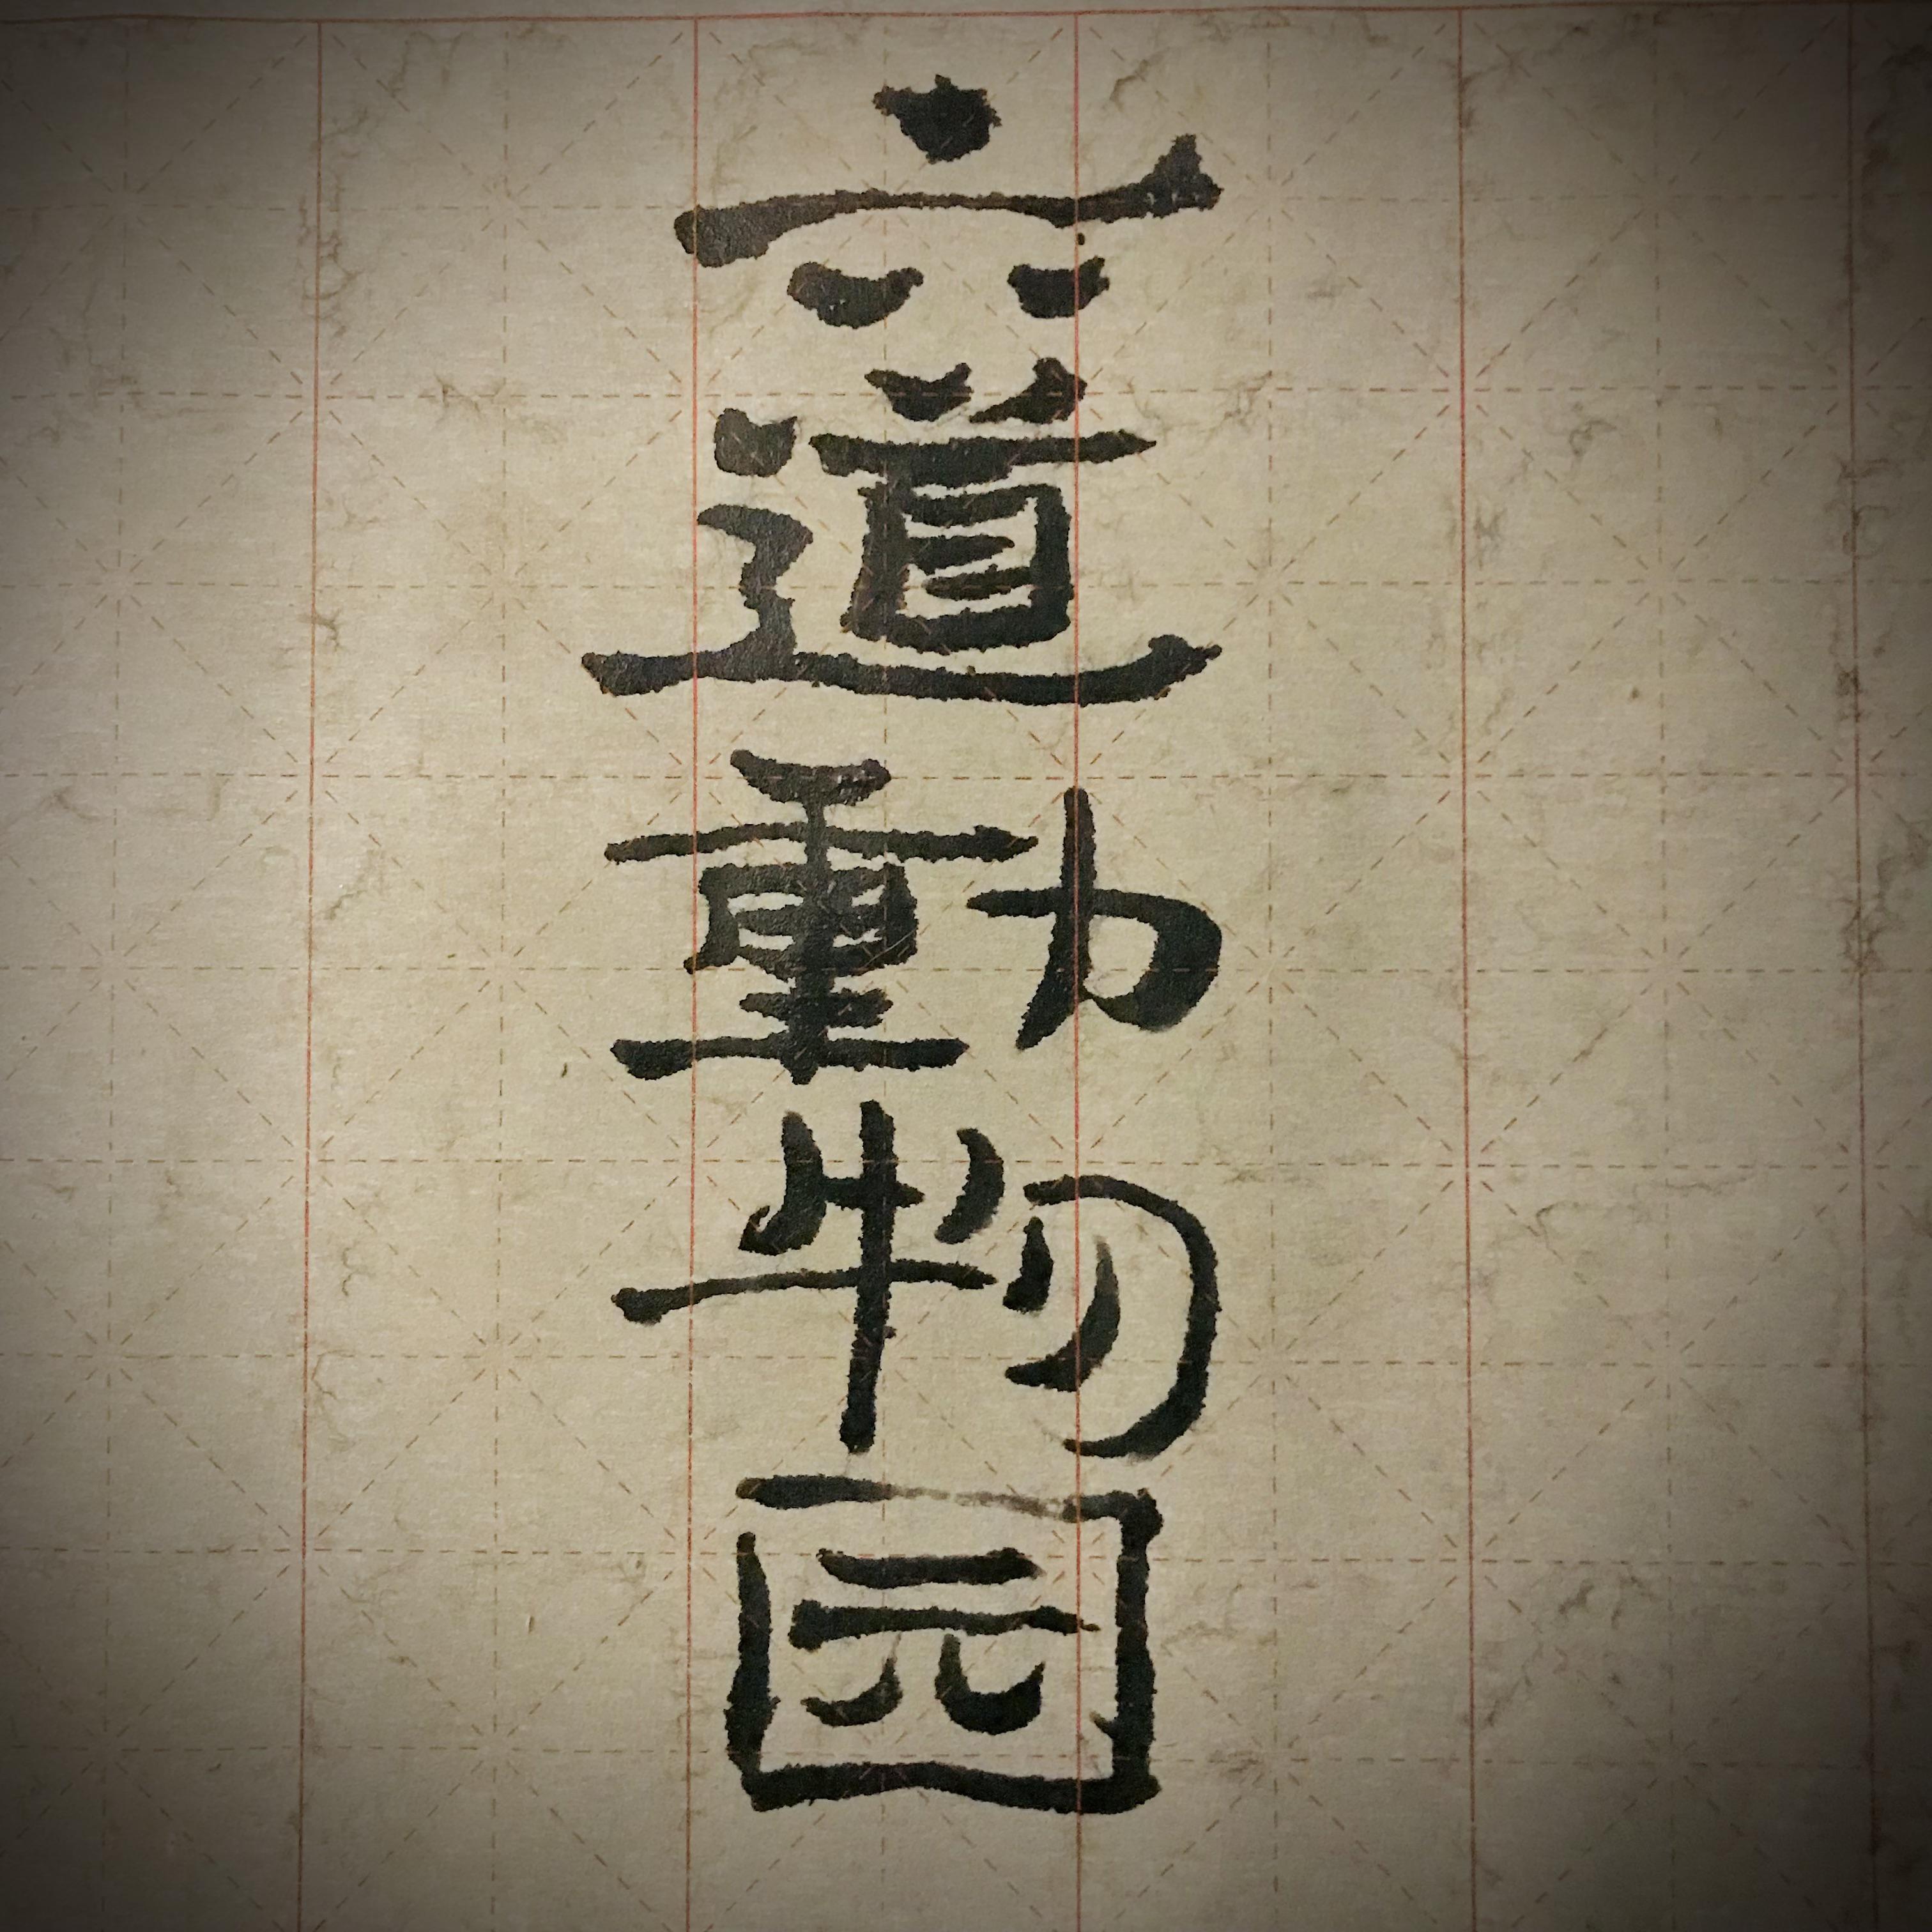 六道動物园